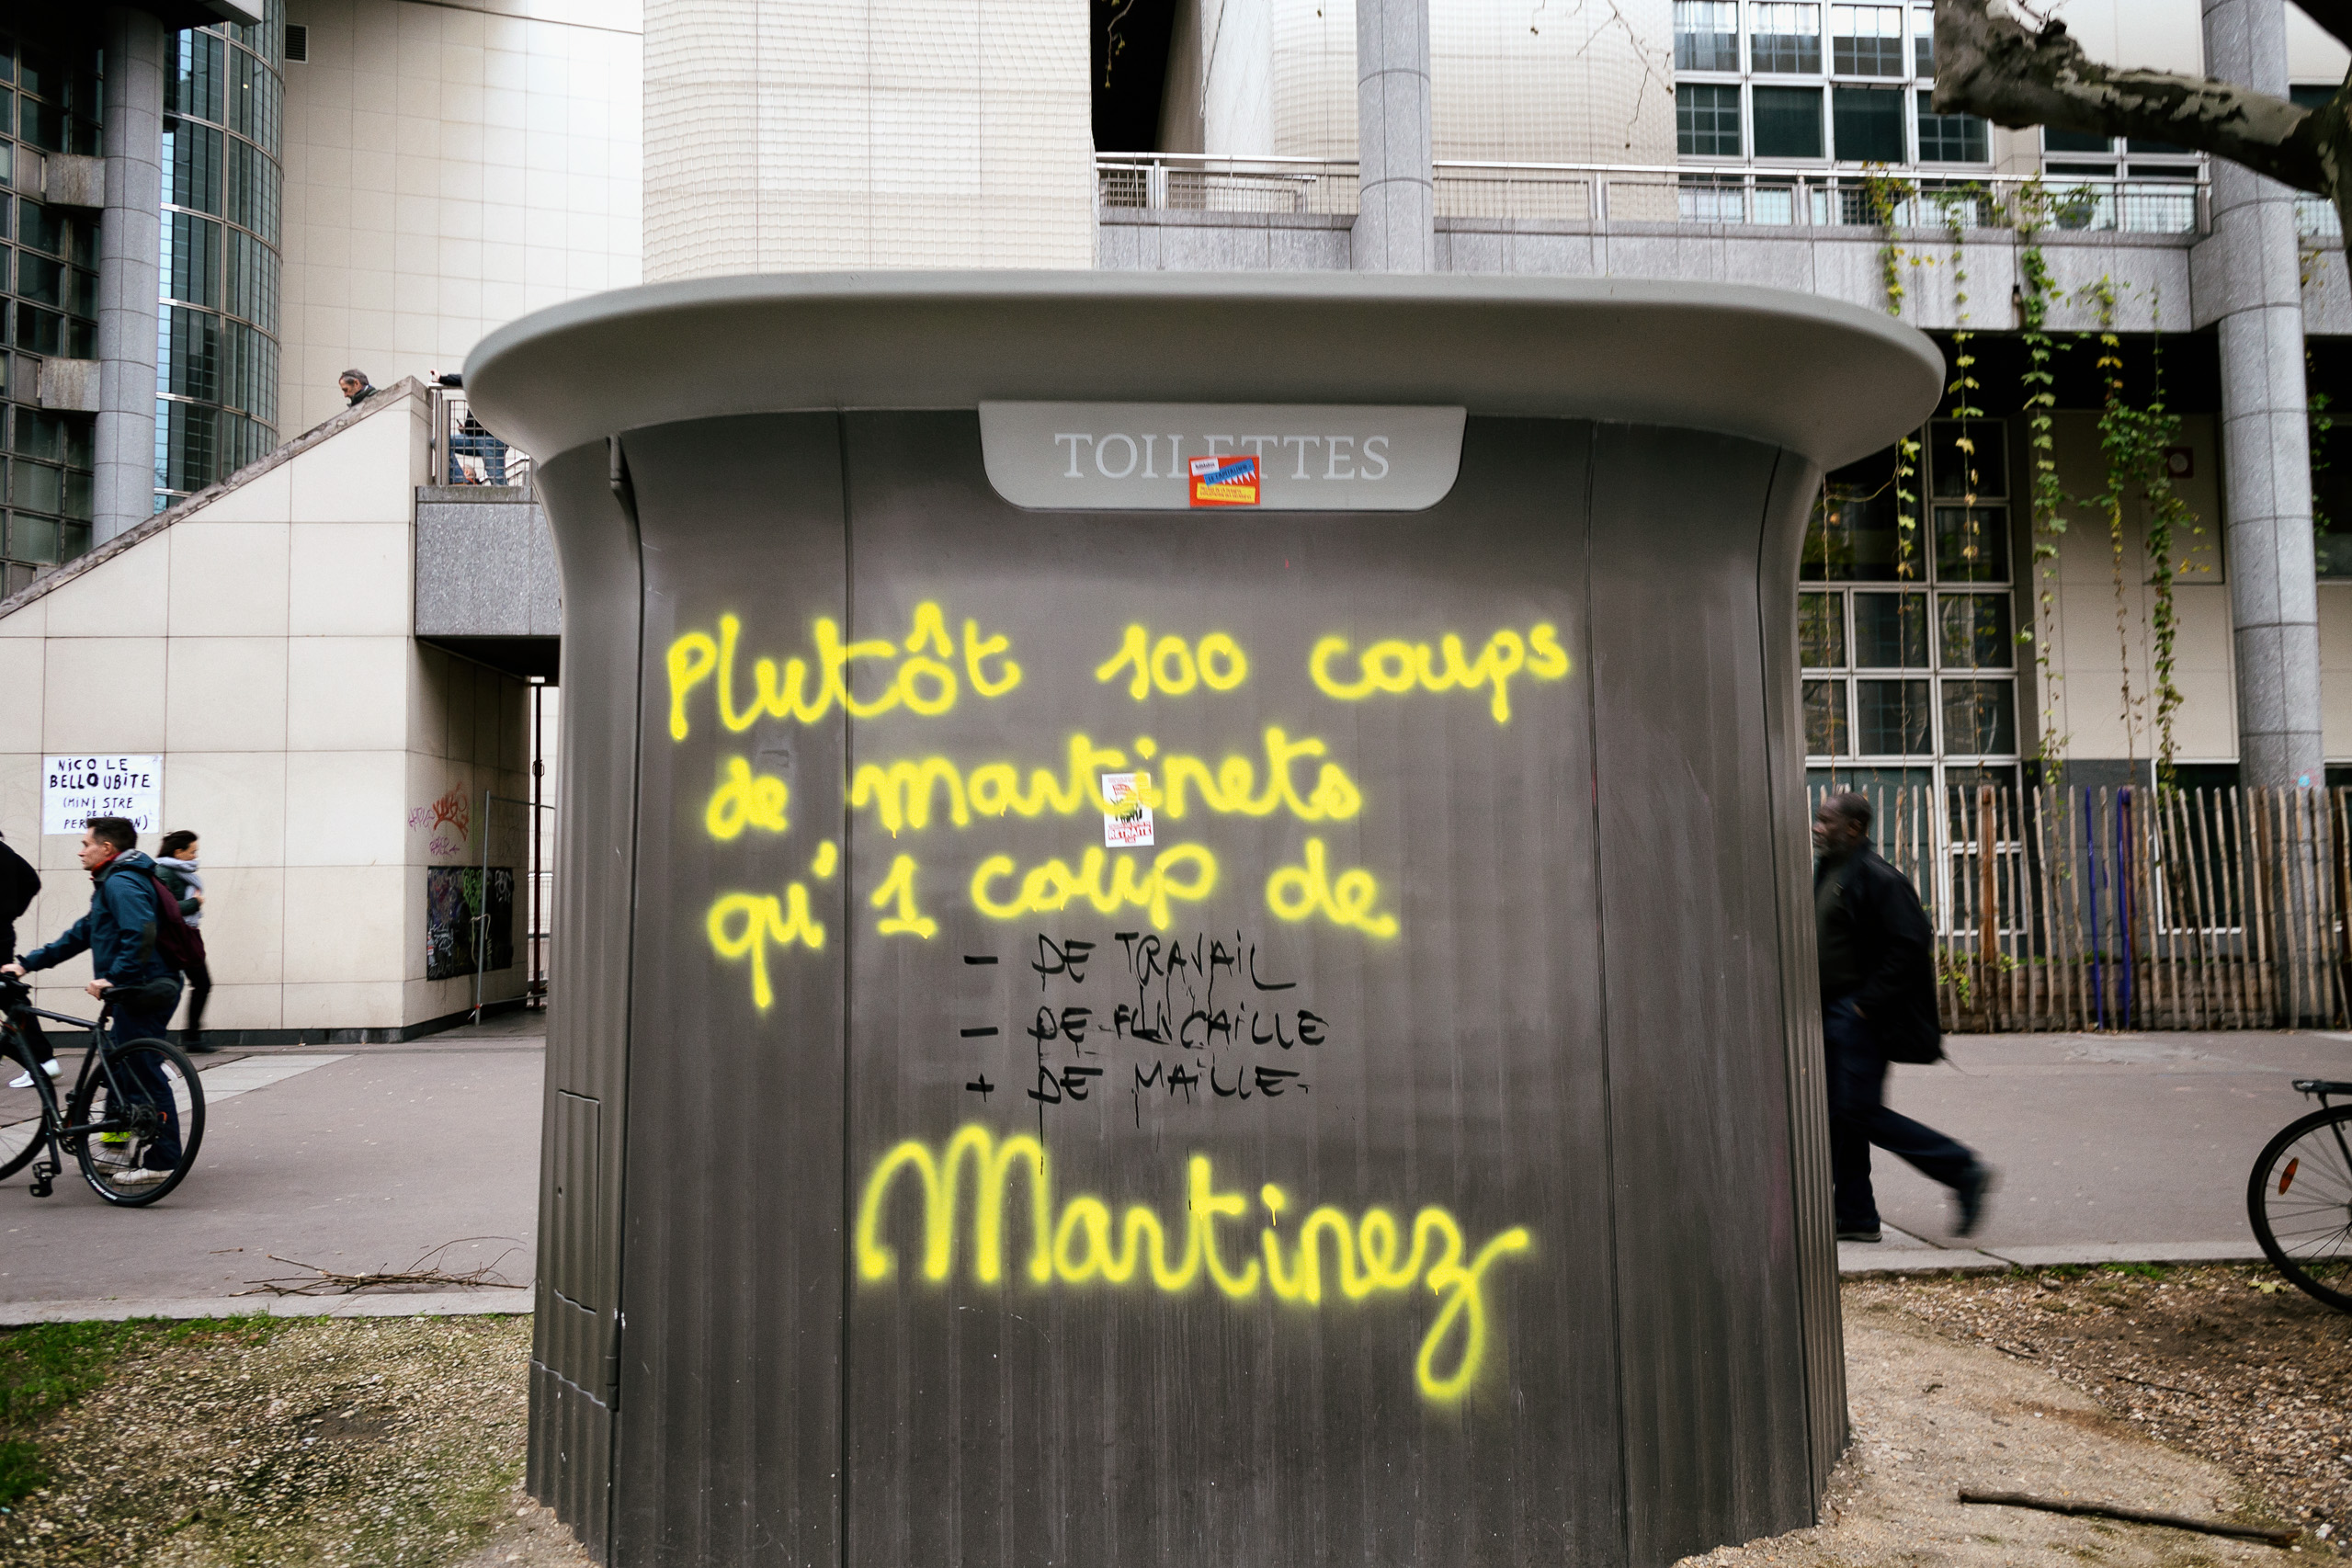 TOILETTES
Plutôt 100 coups
de martinets
qu'1 coup de
- DE TRAVAIL
- DE FLICAILLE
+ DE MAILLE
Martinez
NICOLE
BELLOUBITE
(MINISTRE
DE SA
RETRAITE